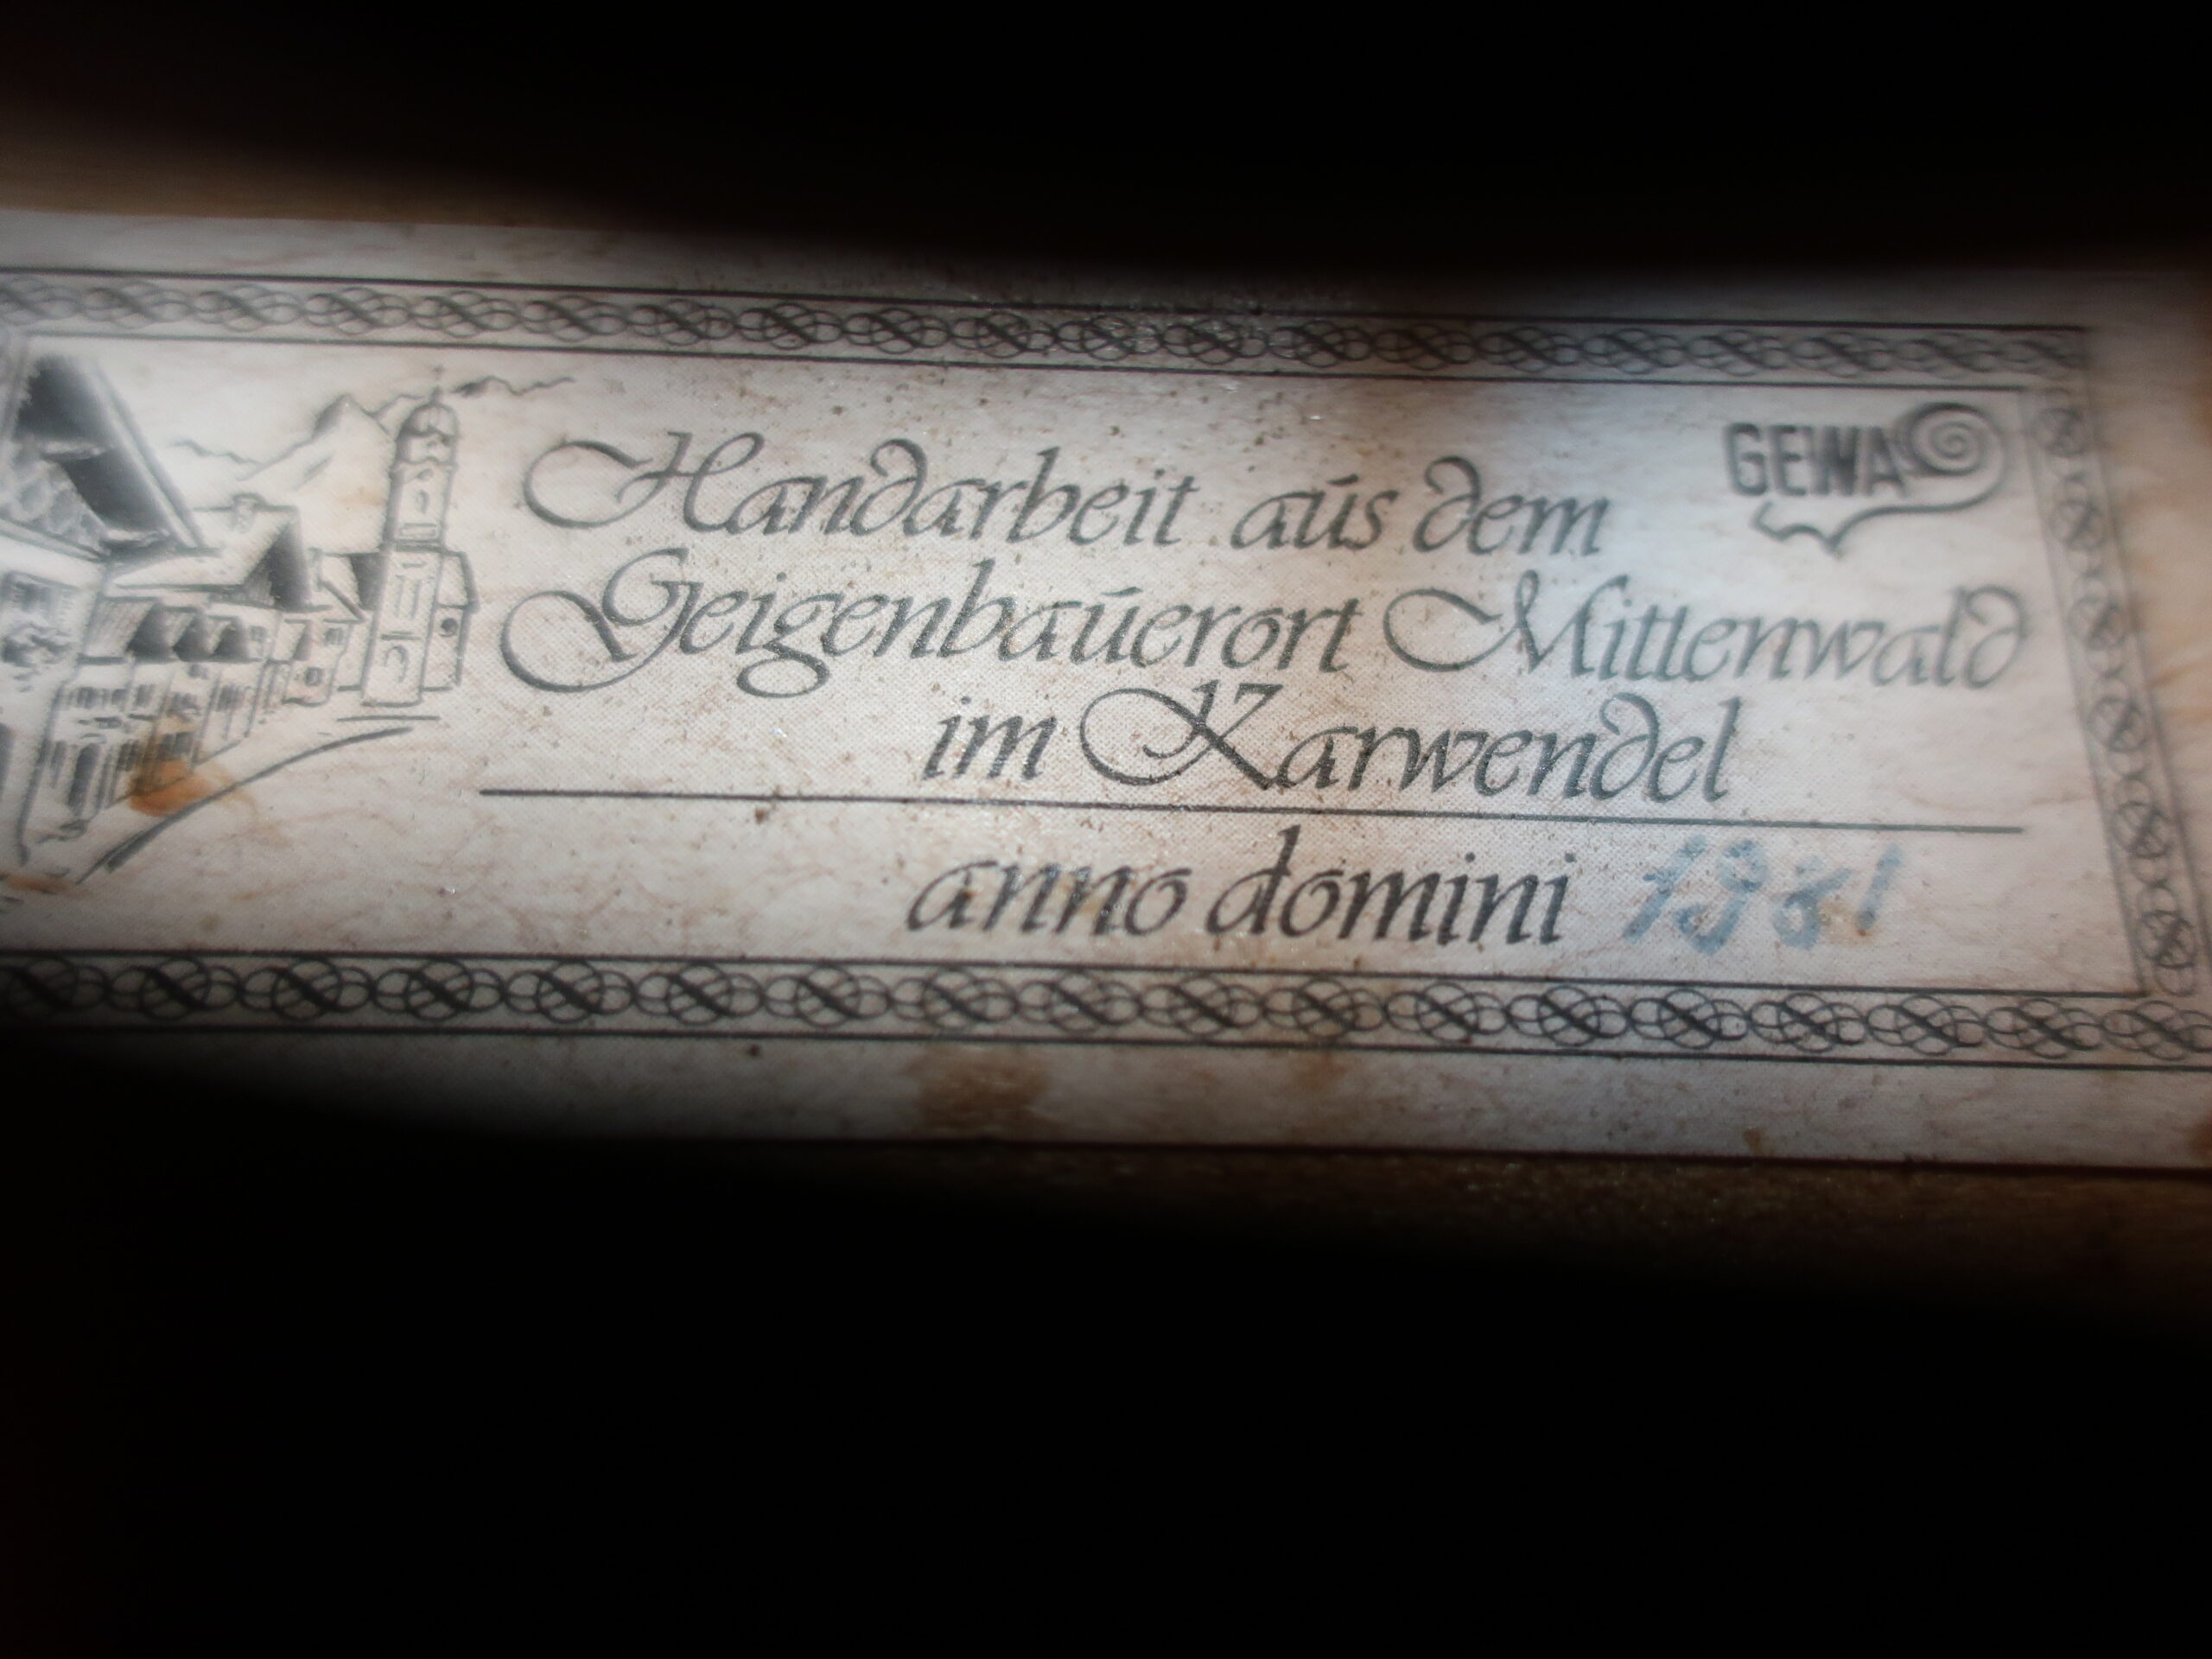 GEWA
Handarbeit aus dem
Geigenbauerort Mittenwald
im Karwendel
anno domini 1981